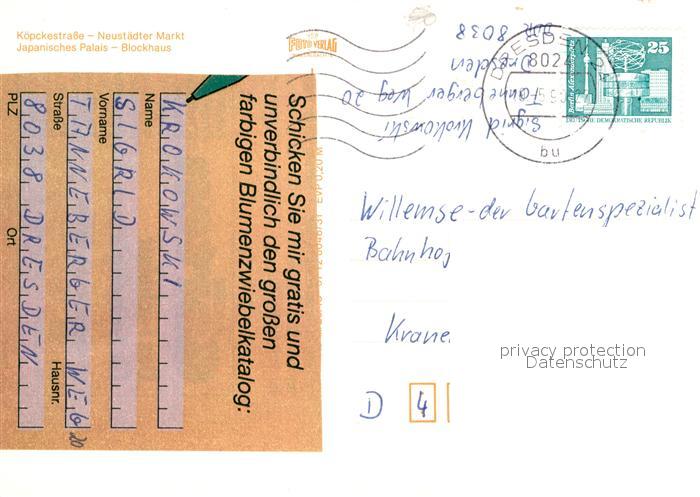 Köpckestraße – Neustädter Markt
Japanisches Palais – Blockhaus
Schicken Sie mir gratis und
unverbindlich den großen
farbigen Blumenzwiebelkatalog:
KROKOWSKI
Name
SIGRID
Vorname
TANNEBERGER WEG 20
Straße Hausnr.
8038 DRESDEN
PLZ Ort
VERLAG
Sigrid Krokowski
Tanneberger Weg 20
Dresden
DDR 8038
DRESDEN
8024
bu
25
Berlin, Alexanderplatz
DEUTSCHE DEMOKRATISCHE REPUBLIK
Willemse-der Gartenspezialist
Bahnhof
Krane
D 4
privacy protection
Datenschutz